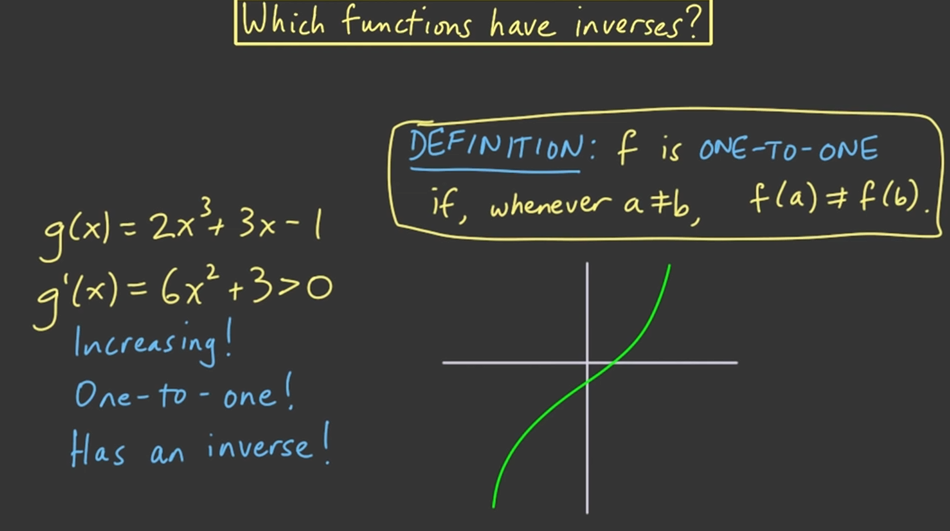 Which functions have inverses?
DEFINITION: f is ONE-TO-ONE
if, whenever a≠b, f(a) ≠ f(b).
g(x) = 2x³ + 3x - 1
g'(x) = 6x² + 3 > 0
Increasing!
One-to-one!
Has an inverse!